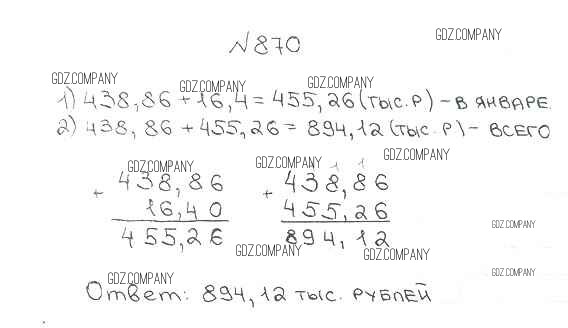 №870
GDZ.COMPANY
GDZ.COMPANY
GDZ.COMPANY
GDZ.COMPANY
1) 438,86 + 16,4 = 455,26 (тыс. р) - в январе.
2) 438,86 + 455,26 = 894,12 (тыс. р) - всего
GDZ.COMPANY
GDZ.COMPANY
GDZ.COMPANY
1 1
+ 438,86 + 438,86
16,40 455,26
455,26 894,12
GDZ.COMPANY
GDZ.COMPANY
GDZ.COMPANY
GDZ.COMPANY
GDZ.COMPANY
Ответ: 894,12 тыс. рублей